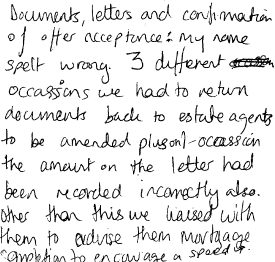 Documents, letters and confirmation
of offer acceptance: my name
spelt wrong. 3 different
occassions we had to return
documents back to estate agents
to be amended plus on 1 occassion
the amount on the letter had
been recorded incorrectly also.
Other than this we liaised with
them to advise them mortgage
completion to encourage a